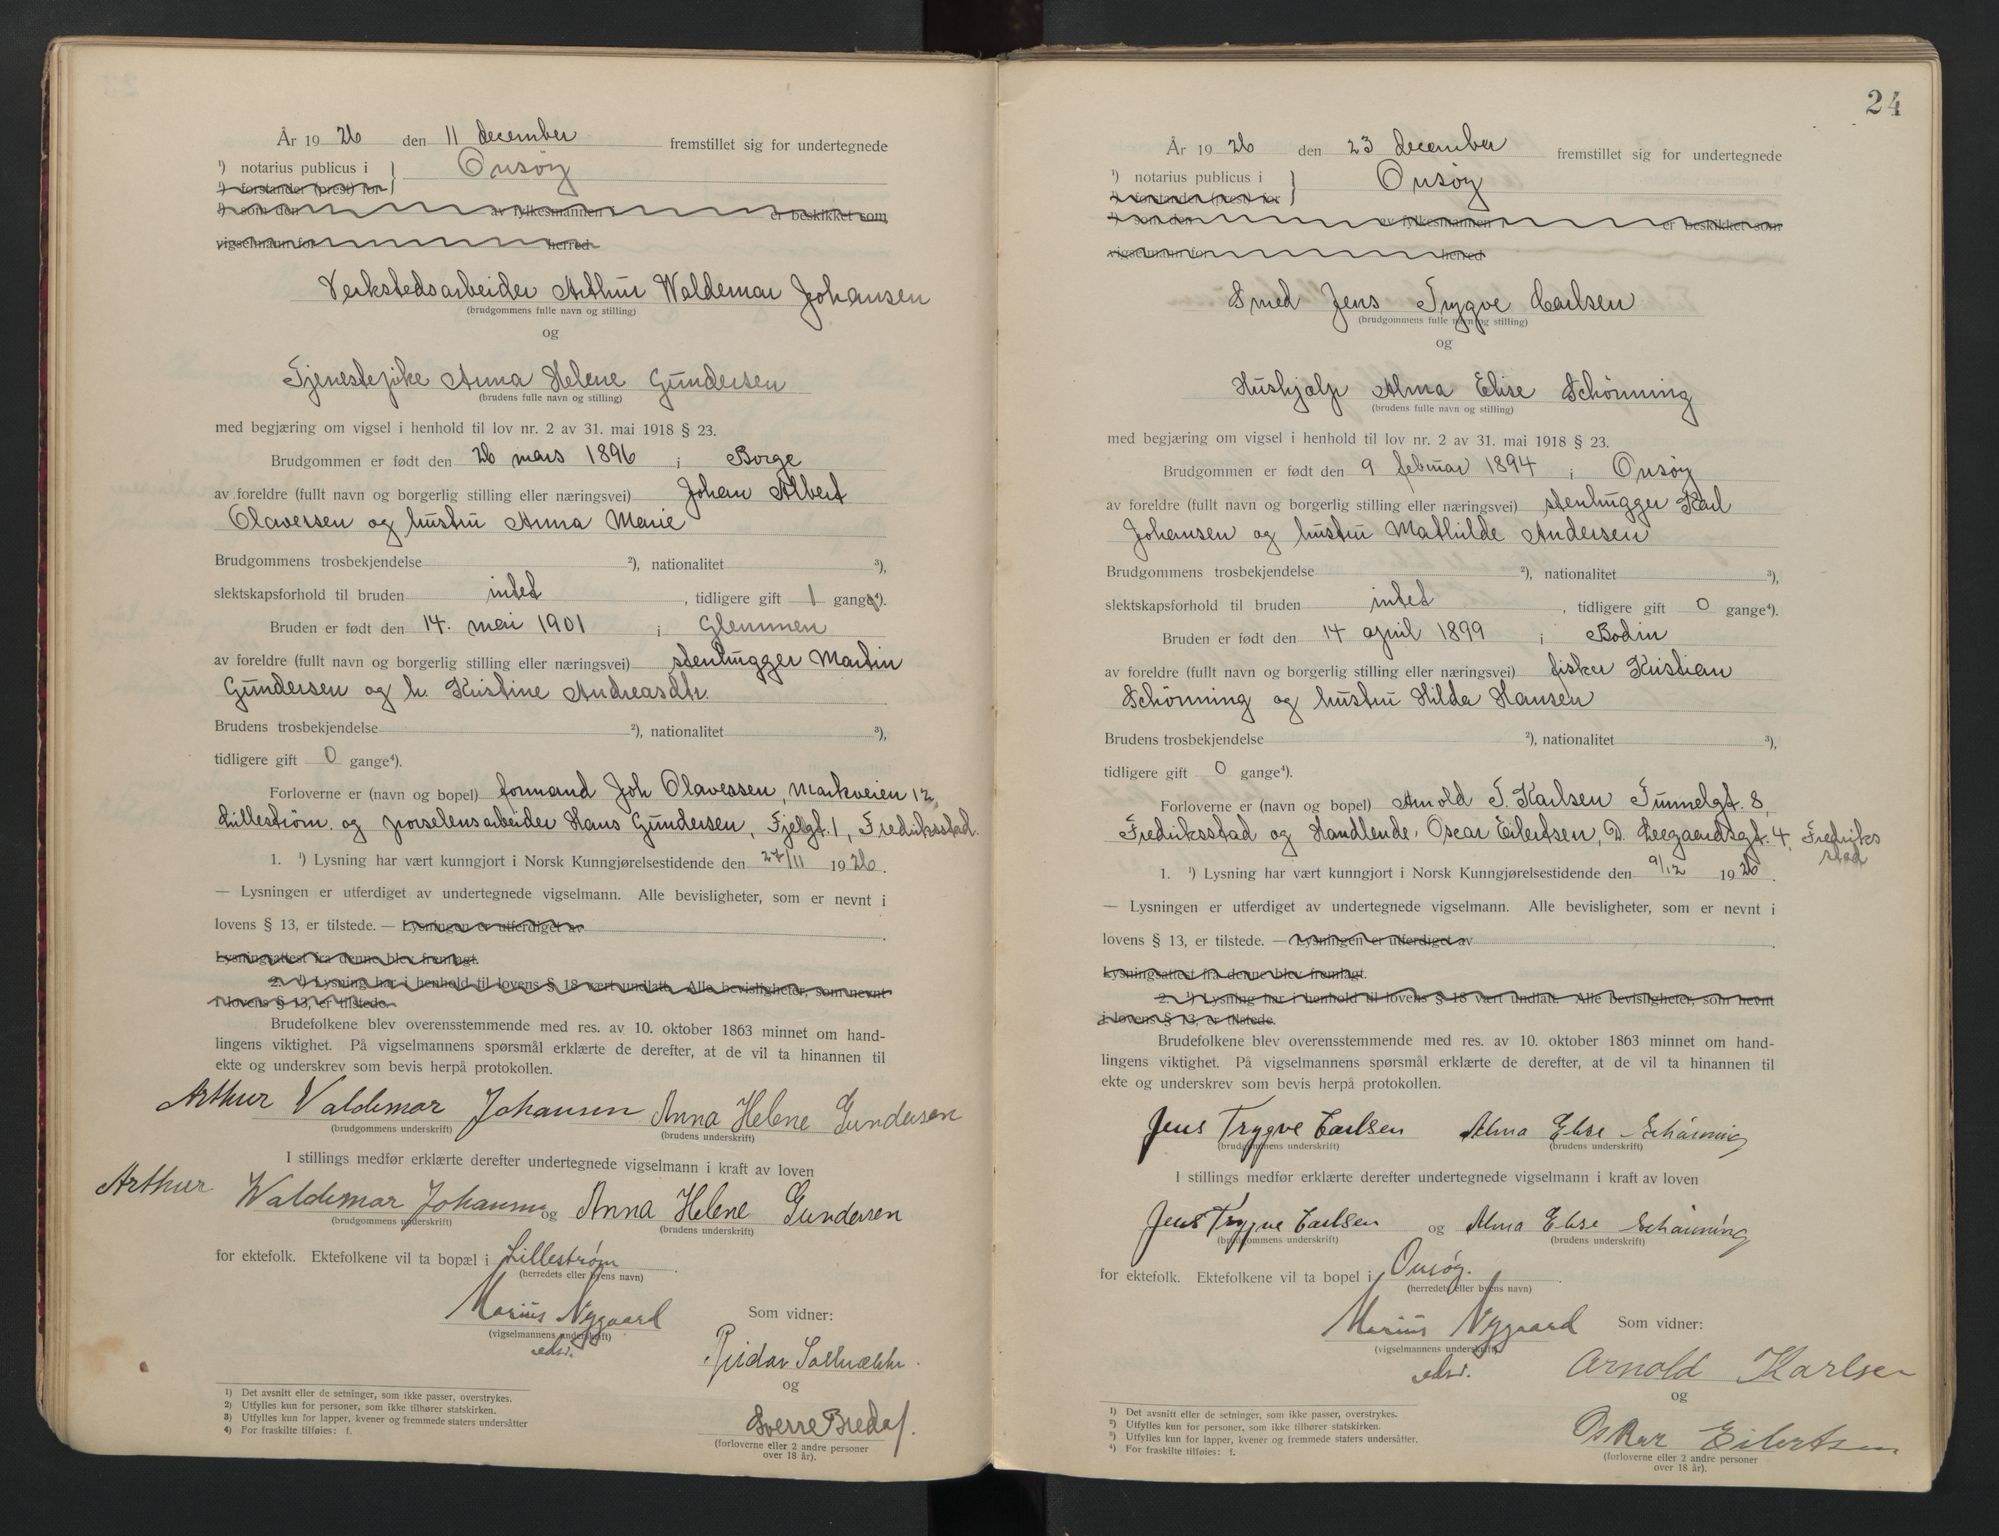 År 1926 den 11 december fremstillet sig for undertegnede
¹) notarius publicus i } Onsøy
¹) forstander (prest) for
¹) som den av fylkesmannen i er beskikket som
vigselmann for herred
Verkstedsarbeider Arthur Waldemar Johansen
(brudgommens fulle navn og stilling)
og
Tjenestepike Anna Helene Gundersen
(brudens fulle navn og stilling)
med begjæring om vigsel i henhold til lov nr. 2 av 31. mai 1918 § 23.
Brudgommen er født den 26 mars 1896 i Borge
av foreldre (fullt navn og borgerlig stilling eller næringsvei) Johan Albert
Olavessen og hustru Anna Marie
Brudgommens trosbekjendelse ²), nationalitet ³),
slektskapsforhold til bruden intet, tidligere gift 1 gange⁴).
Bruden er født den 14. mai 1901 i Glemmen
av foreldre (fullt navn og borgerlig stilling eller næringsvei) stenhugger Martin
Gundersen og h. Kristine Andreasdtr.
Brudens trosbekjendelse ²), nationalitet ³),
tidligere gift 0 gange⁴).
Forloverne er (navn og bopel) formand Joh Olavessen, Markveien 12,
Lillestrøm og porselensarbeider Hans Gundersen, Fjelgt. 1, Fredriksstad.
1. ¹) Lysning har vært kunngjort i Norsk Kunngjørelsestidende den 27/11 1926.
— Lysningen er utferdiget av undertegnede vigselmann. Alle bevisligheter, som er nevnt i
lovens § 13, er tilstede. — Lysningen er utferdiget av
Lysningsattest fra denne blev fremlagt.
2. ¹) Lysning har i henhold til lovens § 18 vært undlatt. Alle bevisligheter, som nevnt
i lovens § 13, er tilstede.
Brudefolkene blev overensstemmende med res. av 10. oktober 1863 minnet om hand-
lingens viktighet. På vigselmannens spørsmål erklærte de derefter, at de vil ta hinannen til
ekte og underskrev som bevis herpå protokollen.
Arthur Valdemar Johansen Anna Helene Gundersen
(brudgommens underskrift) (brudens underskrift)
I stillings medfør erklærte derefter undertegnede vigselmann i kraft av loven
Arthur Waldemar Johansen og Anna Helene Gundersen
(brudgommens underskrift) (brudens underskrift)
for ektefolk. Ektefolkene vil ta bopæl i Lillestrøm.
(herredets eller byens navn)
Marius Nygaard Som vidner:
(vigselmannens underskrift)
edsv.
Reidar
og
Sverre Breda
(forloverne eller 2 andre personer
over 18 år).
¹) Det avsnitt eller de setninger, som ikke passer, overstrykes.
²) Utfylles kun for personer, som ikke tilhører statskirken.
³) Utfylles kun for lapper, kvener og fremmede staters undersåtter
⁴) For fraskilte tilføies: f.
24
År 1926 den 23 december fremstillet sig for undertegnede
¹) notarius publicus i } Onsøy
¹) forstander (prest) for
¹) som den av fylkesmannen i er beskikket som
vigselmann for herred
Smed Jens Trygve Carlsen
(brudgommens fulle navn og stilling)
og
Hushjælp Alma Elise Schönning
(brudens fulle navn og stilling)
med begjæring om vigsel i henhold til lov nr. 2 av 31. mai 1918 § 23.
Brudgommen er født den 9 februar 1894 i Onsøy
av foreldre (fullt navn og borgerlig stilling eller næringsvei) stenhugger Karl
Johansen og hustru Mathilde Andersen
Brudgommens trosbekjendelse ²), nationalitet ³),
slektskapsforhold til bruden intet, tidligere gift 0 gange⁴).
Bruden er født den 14 april 1899 i Bodin
av foreldre (fullt navn og borgerlig stilling eller næringsvei) fisker Kristian
Schönning og hustru Hilda Hansen
Brudens trosbekjendelse ²), nationalitet ³),
tidligere gift 0 gange⁴).
Forloverne er (navn og bopel) Arnold T. Karlsen Tunnelgt. 8,
Fredriksstad og Handlende Oscar Eilertsen, D. Leegaardsgt. 4, Fredriks
stad
1. ¹) Lysning har vært kunngjort i Norsk Kunngjørelsestidende den 9/12 1926.
— Lysningen er utferdiget av undertegnede vigselmann. Alle bevisligheter, som er nevnt i
lovens § 13, er tilstede. — Lysningen er utferdiget av
Lysningsattest fra denne blev fremlagt.
2. ¹) Lysning har i henhold til lovens § 18 vært undlatt. Alle bevisligheter, som nevnt
i lovens § 13, er tilstede.
Brudefolkene blev overensstemmende med res. av 10. oktober 1863 minnet om hand-
lingens viktighet. På vigselmannens spørsmål erklærte de derefter, at de vil ta hinannen til
ekte og underskrev som bevis herpå protokollen.
Jens Trygve Carlsen Alma Elise Schønning
(brudgommens underskrift) (brudens underskrift)
I stillings medfør erklærte derefter undertegnede vigselmann i kraft av loven
Jens Trygve Carlsen og Alma Elise Schønning
(brudgommens underskrift) (brudens underskrift)
for ektefolk. Ektefolkene vil ta bopel i Onsøy.
(herredets eller byens navn)
Marius Nygaard Som vidner:
(vigselmannens underskrift)
edsv.
Arnold Karlsen
og
Oskar Eilertsen
(forloverne eller 2 andre personer
over 18 år).
¹) Det avsnitt eller de setninger, som ikke passer, overstrykes.
²) Utfylles kun for personer, som ikke tilhører statskirken.
³) Utfylles kun for lapper, kvener og fremmede staters undersåtter.
⁴) For fraskilte tilføies: f.